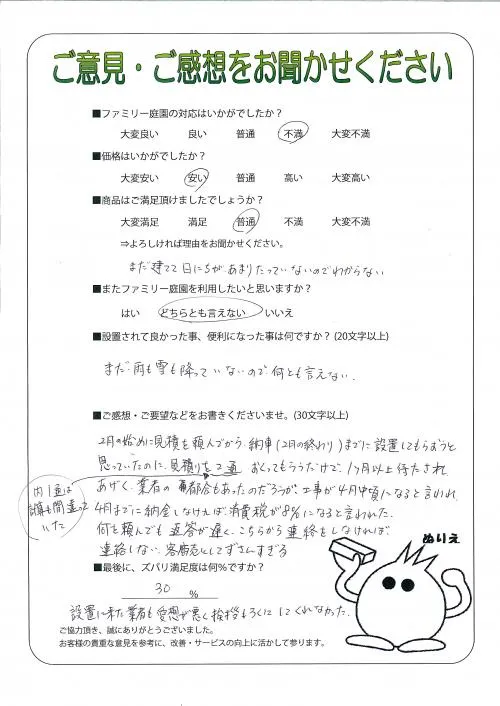 ご意見・ご感想をお聞かせください
■ファミリー庭園の対応はいかがでしたか？
大変良い 良い 普通 不満 大変不満
■価格はいかがでしたか？
大変安い 安い 普通 高い 大変高い
■商品はご満足頂けましたでしょうか？
大変満足 満足 普通 不満 大変不満
⇒よろしければ理由をお聞かせください。
まだ建てて日にちがあまりたっていないのでわからない
■またファミリー庭園を利用したいと思いますか？
はい どちらとも言えない いいえ
■設置されて良かった事、便利になった事は何ですか？(20文字以上)
まだ雨も雪も降っていないので何とも言えない.
■ご感想・ご要望などをお書きくださいませ。(30文字以上)
2月の始めに見積を頼んでから、納車(2月の終わり)までに設置してもらおうと
思っていたのに、見積りを2通 おくってもらうだけで1ヶ月以上待たされ
あげく、業者の都合もあったのだろうが、工事が4月中頃になると言われ、
4月までに納金しなければ消費税が8%になると言われた。
何を頼んでも返答が遅く、こちらから連絡をしなければ
連絡しない、客商売としてずさんすぎる
内1通は
計算も間違って
いた
ぬりえ
■最後に、ズバリ満足度は何％ですか？
30 %
設置に来た業者も愛想が悪く挨拶もろくにしてくれなかった.
ご協力頂き、誠にありがとうございました。
お客様の貴重な意見を参考に、改善・サービスの向上に活かして参ります。